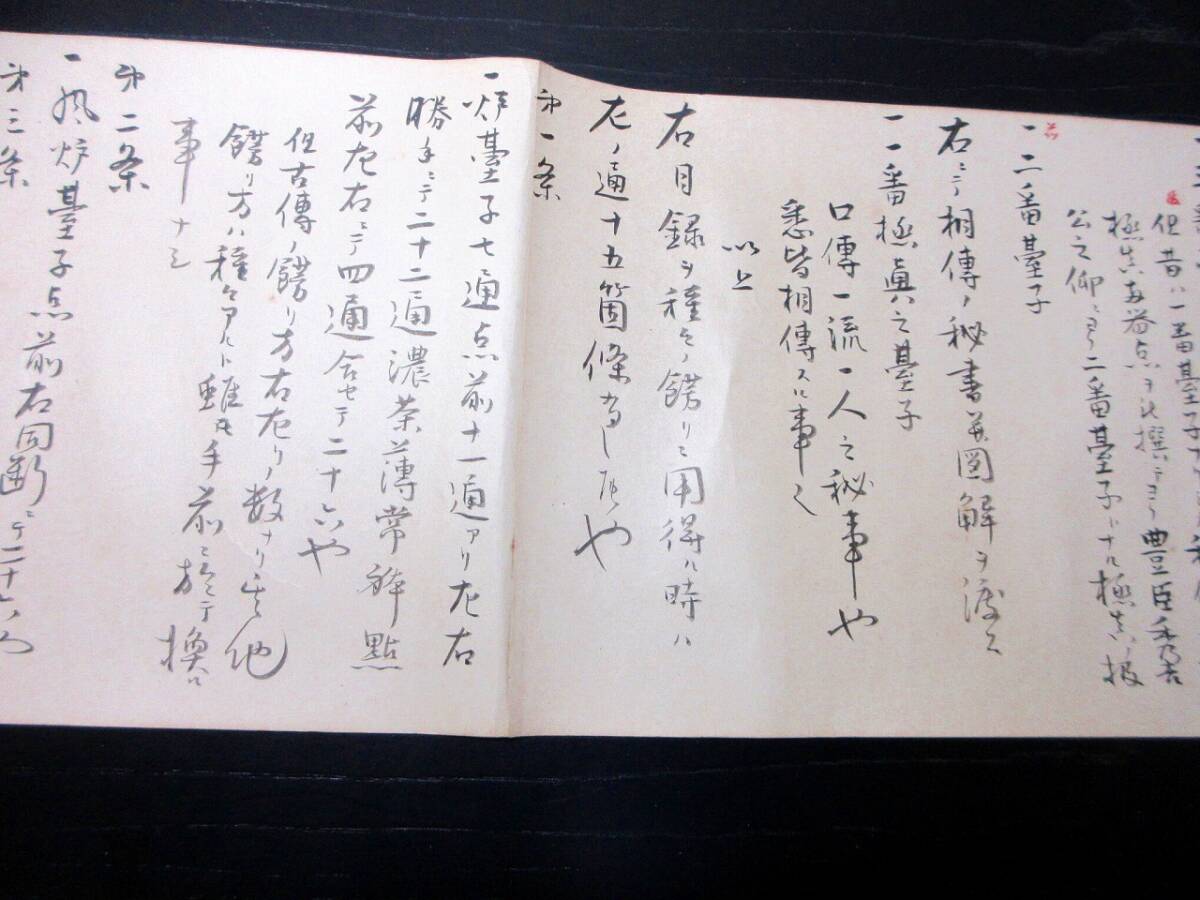 但昔ハ一番臺子
極真両 点ヲ 撰テヨリ豊臣秀吉
公之仰ニヨリ二番臺子トナル極真ノ扱
一二番臺子
右ニテ相傳ノ秘書并図解ヲ渡ス
一一番極真ノ之臺子
口傳一流一人之秘事也
悉皆相傳スル事也
以上
右目録ヲ種々ノ餝リニ用得ル時ハ
左ノ通十五箇條
第一条
一炉臺子七通点前十一通アリ左右
勝手ニテ二十二通濃茶薄常躰點
前左右ニテ四通合セテ二十六也
但古傳ノ餝リ方右左リノ数ナリ其他
餝リ方ハ種々アルト雖モ手前ニ於テ換ル
事ナシ
第二条
一風炉臺子点前右同断ニテ二十六也
第三条